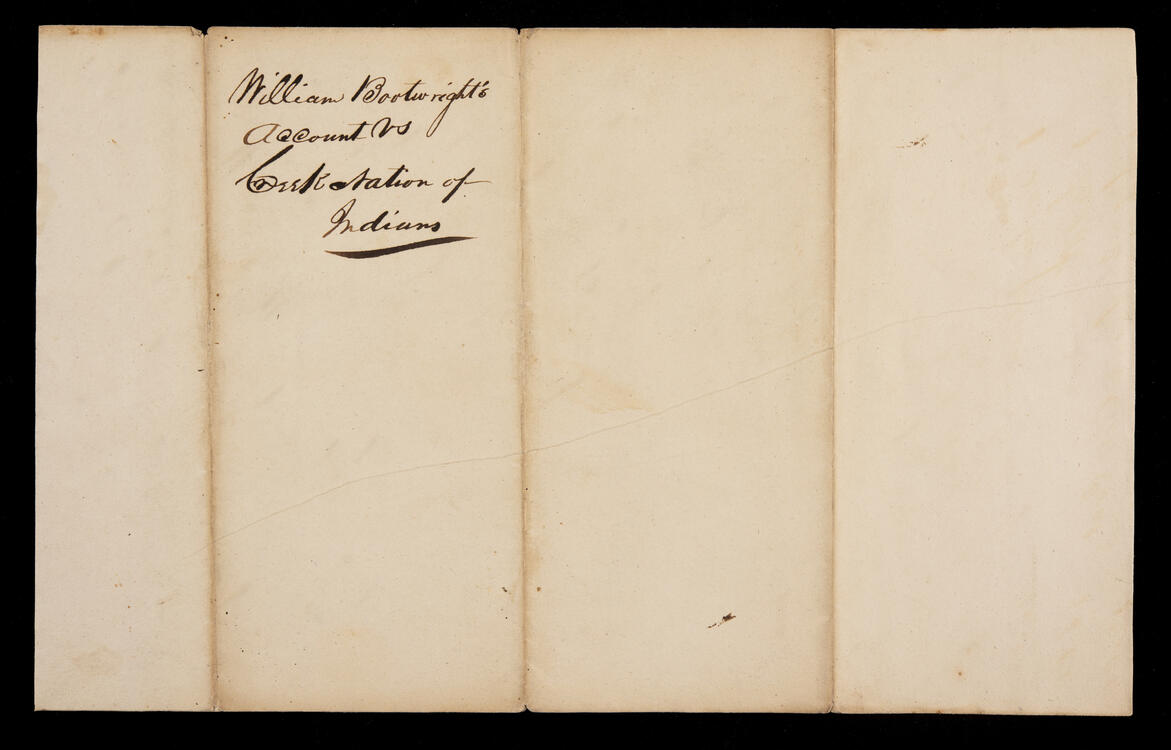 William Bootwright's
Account Vs
Creek Nation of
Indians